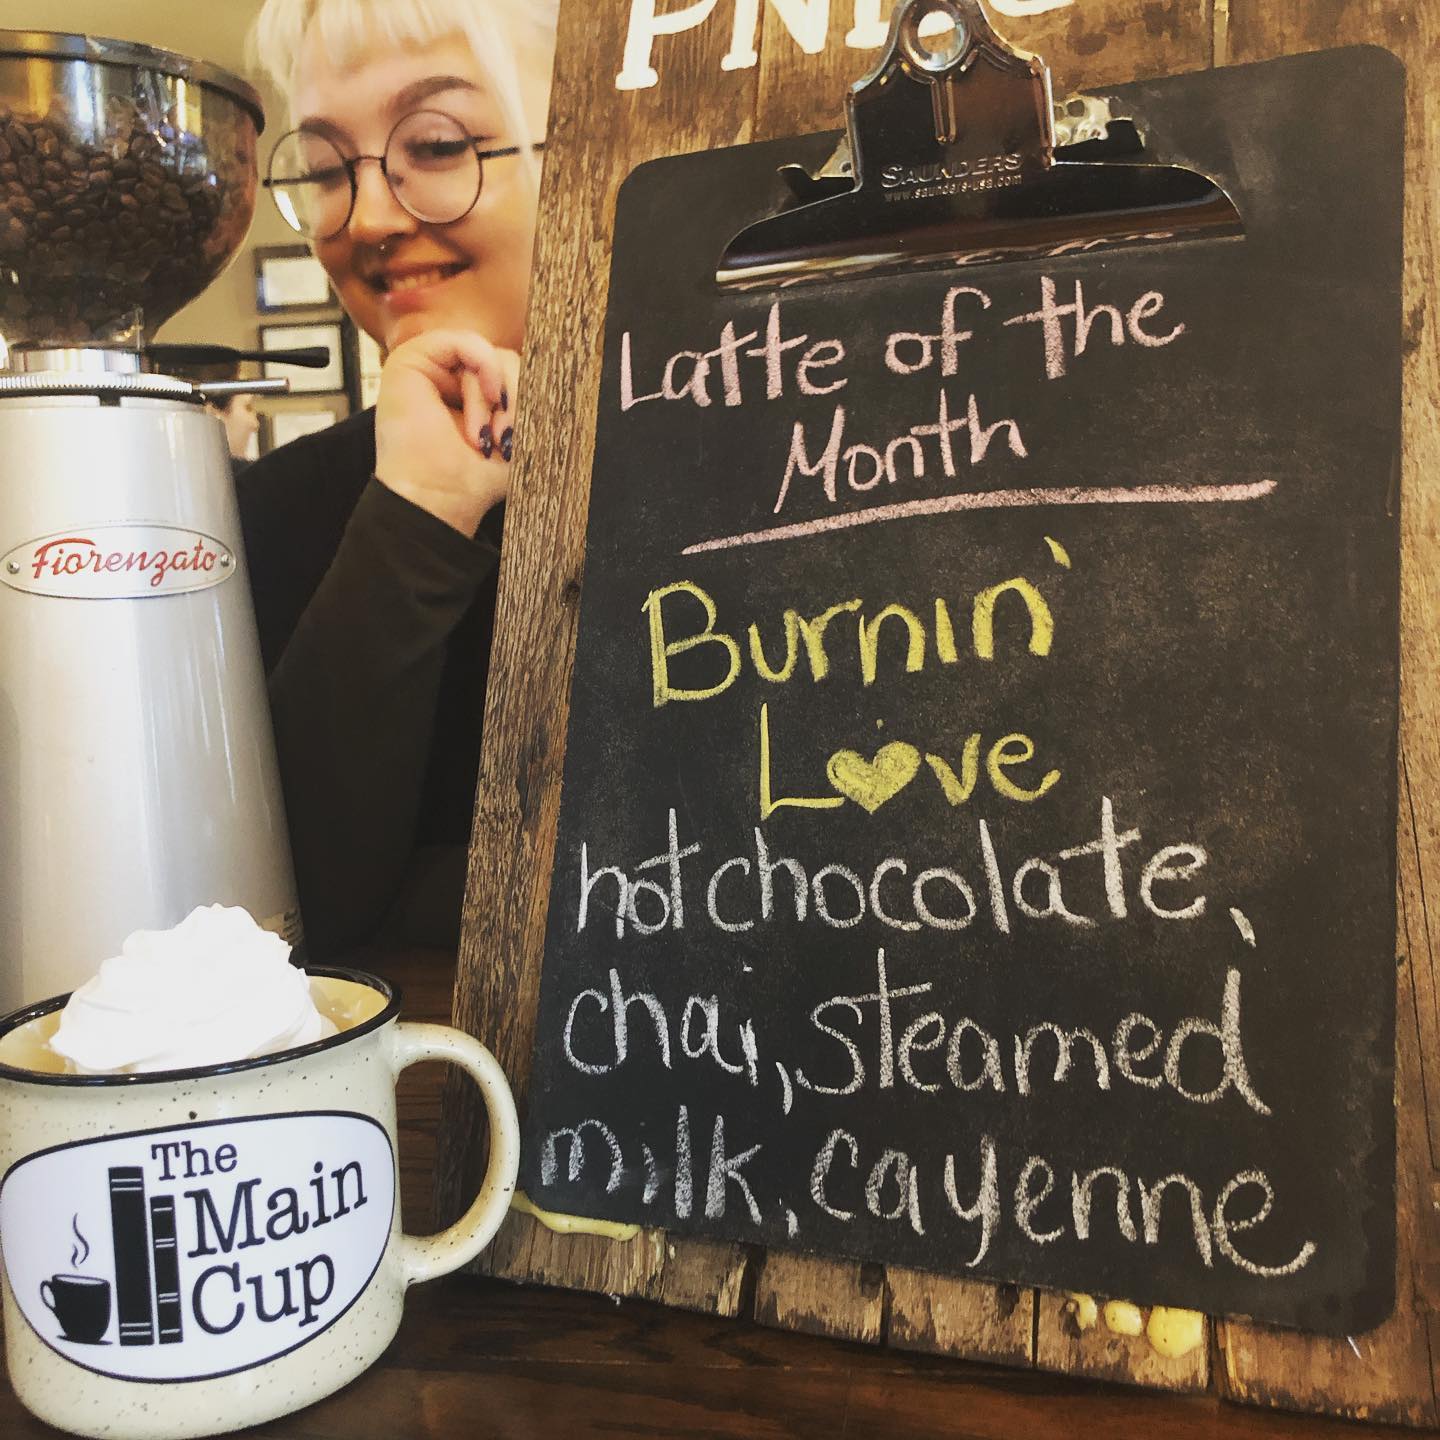 SAUNDERS
www.saunders-usa.com
Latte of the
Month
Burnin'
L♥ve
hot chocolate,
chai, steamed
milk, cayenne
Fiorenzato
The
Main
Cup